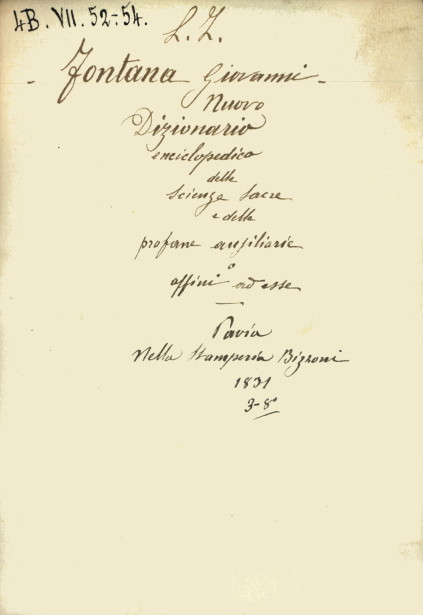 4B. VII. 52-54.
L. Z.
- Fontana Giovanni -
Nuovo
Dizionario
enciclopedico
delle
Scienze Sacre
e delle
profane ausiliarie
o
affini ad esse
Pavia
Nella Stamperia Bizzoni
1831
3-8°